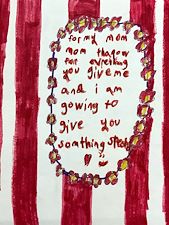 for my mom
mom thapow
for everything
you give me
and i am
gowing to
give you
somthing